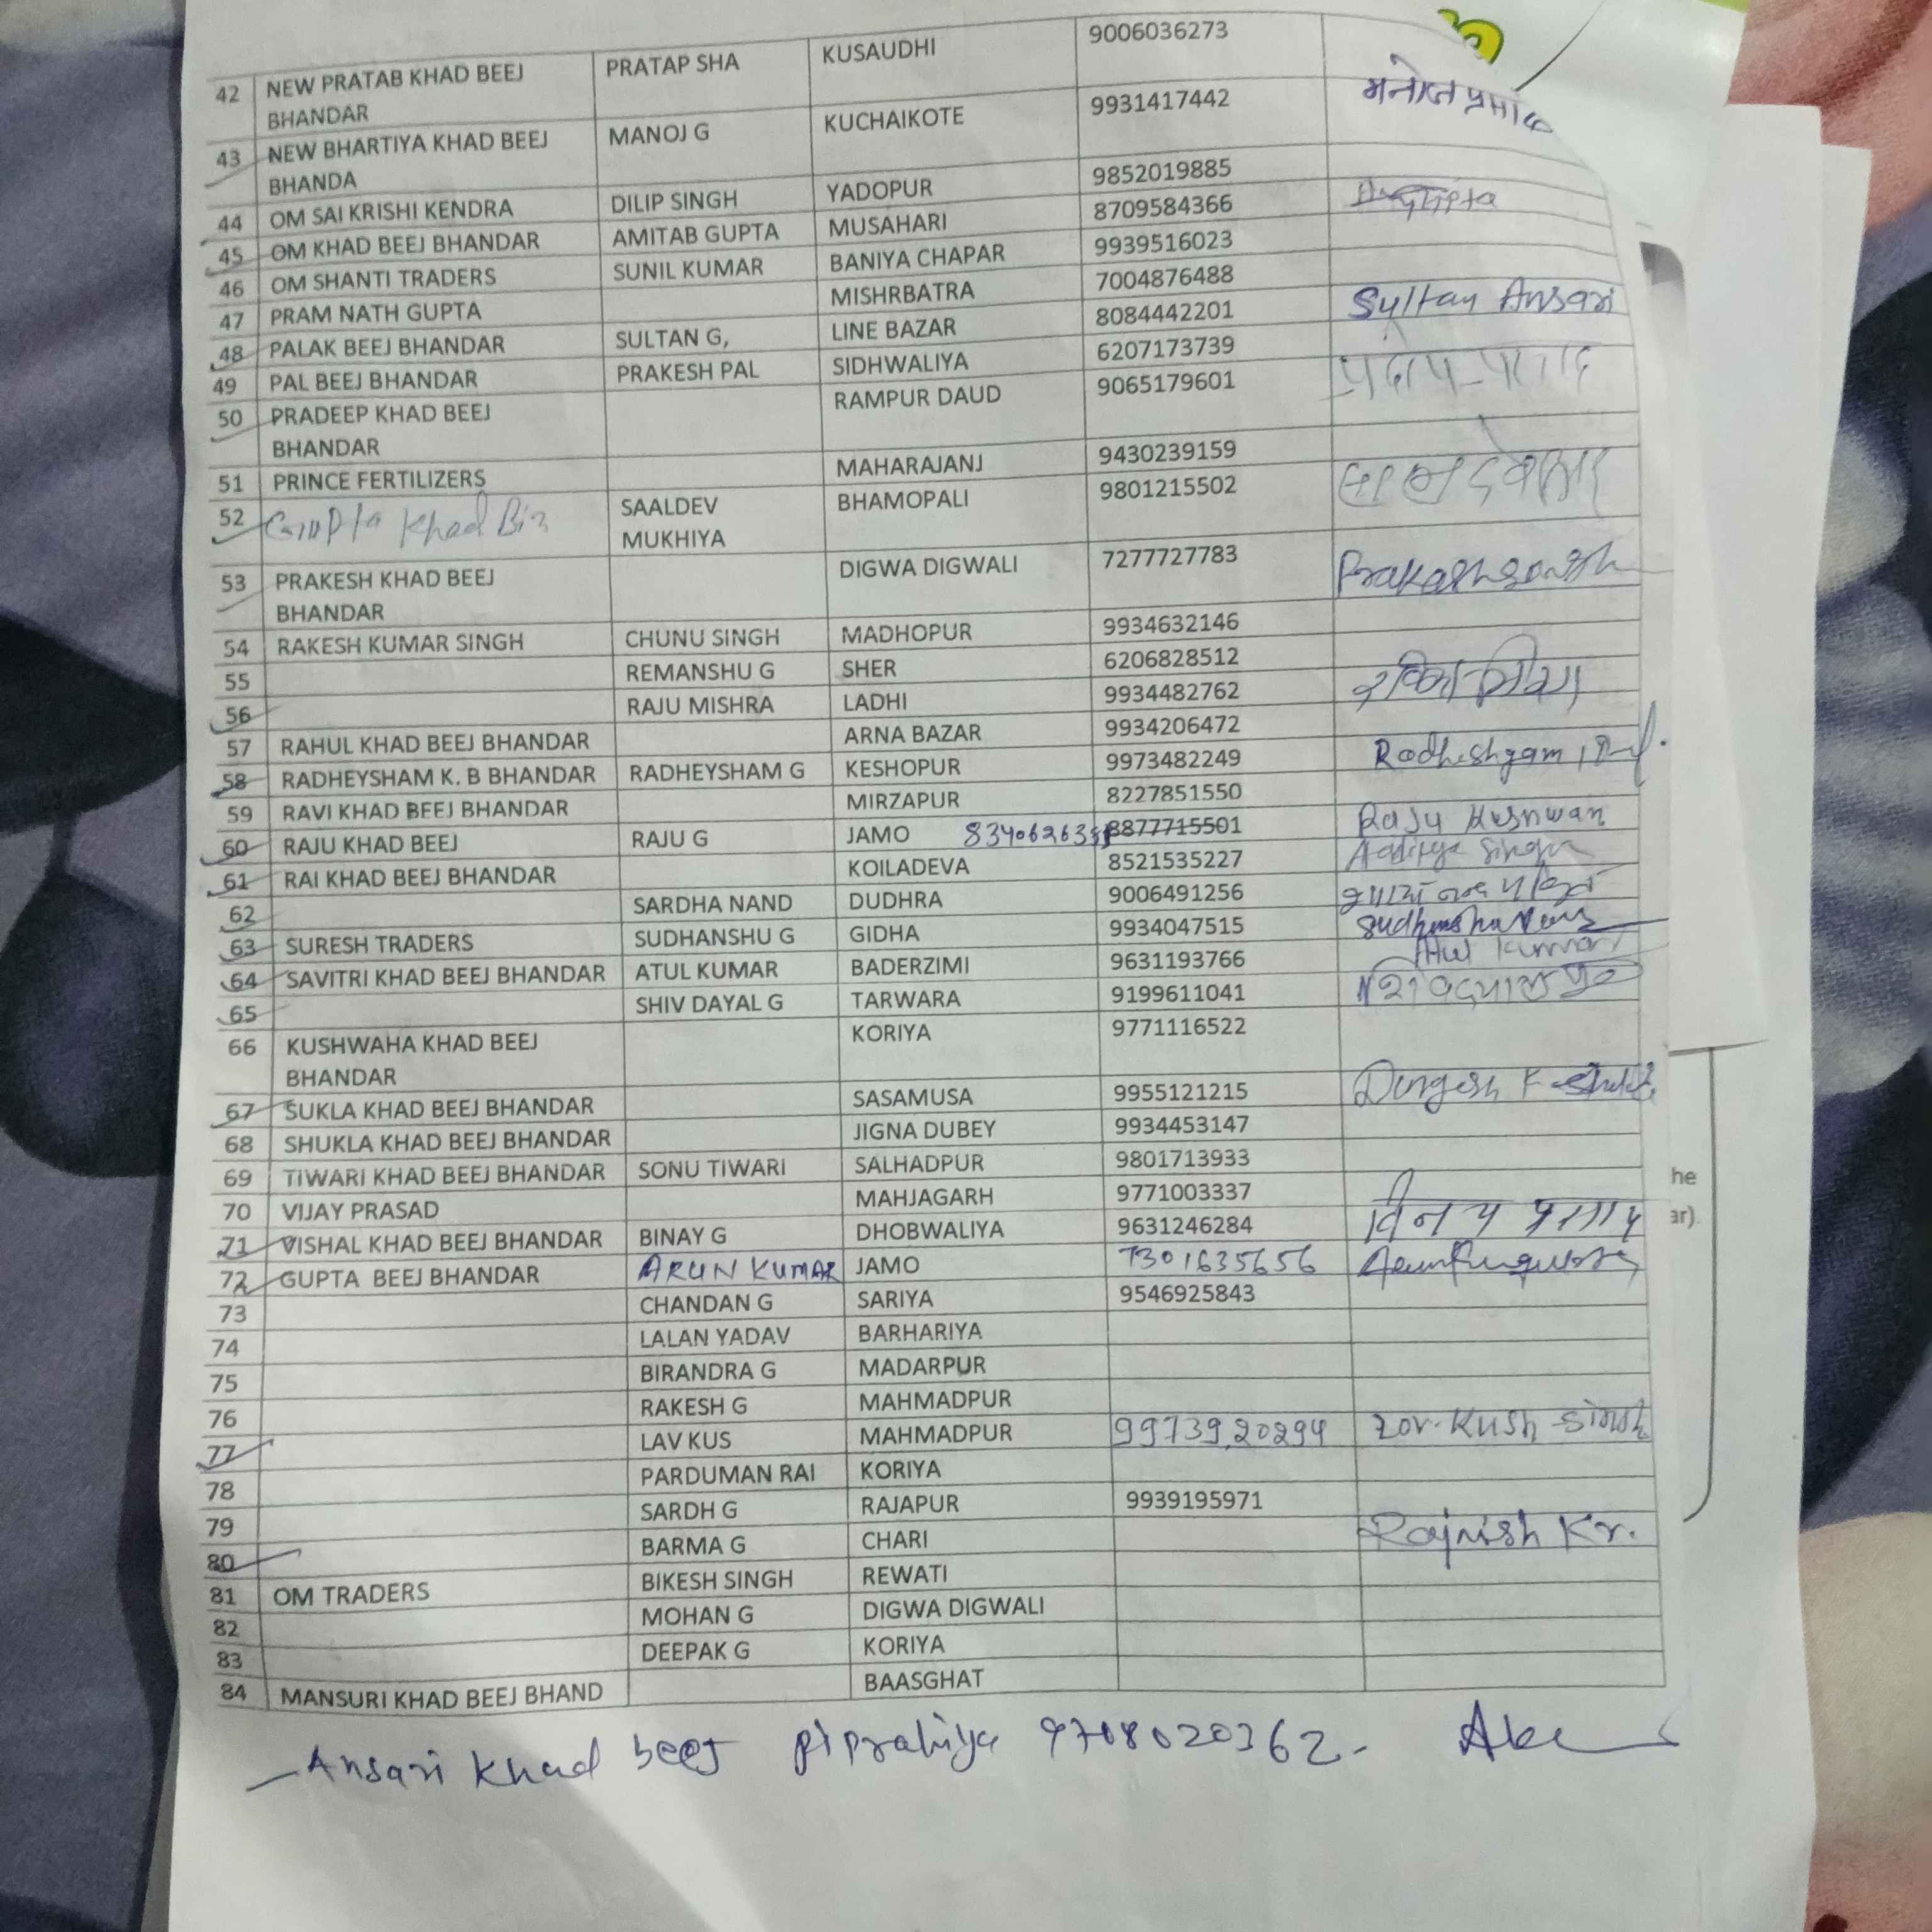 42 NEW PRATAB KHAD BEEJ BHANDAR PRATAP SHA KUSAUDHI 9006036273
43 NEW BHARTIYA KHAD BEEJ BHANDA MANOJ G KUCHAIKOTE 9931417442 मनोज प्रसाद
44 OM SAI KRISHI KENDRA DILIP SINGH YADOPUR 9852019885
45 OM KHAD BEEJ BHANDAR AMITAB GUPTA MUSAHARI 8709584366
46 OM SHANTI TRADERS SUNIL KUMAR BANIYA CHAPAR 9939516023
47 PRAM NATH GUPTA MISHRBATRA 7004876488
48 PALAK BEEJ BHANDAR SULTAN G, LINE BAZAR 8084442201 Sultan Ansari
49 PAL BEEJ BHANDAR PRAKESH PAL SIDHWALIYA 6207173739
50 PRADEEP KHAD BEEJ BHANDAR RAMPUR DAUD 9065179601
51 PRINCE FERTILIZERS MAHARAJANJ 9430239159
52 Gupta Khad Biz SAALDEV MUKHIYA BHAMOPALI 9801215502
53 PRAKESH KHAD BEEJ BHANDAR DIGWA DIGWALI 7277727783
54 RAKESH KUMAR SINGH CHUNU SINGH MADHOPUR 9934632146
55 REMANSHU G SHER 6206828512
56 RAJU MISHRA LADHI 9934482762
57 RAHUL KHAD BEEJ BHANDAR ARNA BAZAR 9934206472
58 RADHEYSHAM K. B BHANDAR RADHEYSHAM G KESHOPUR 9973482249 Radheshyam
59 RAVI KHAD BEEJ BHANDAR MIRZAPUR 8227851550
60 RAJU KHAD BEEJ RAJU G JAMO 8877715501 Raju Kushwah
61 RAI KHAD BEEJ BHANDAR KOILADEVA 8521535227 Aaditya Singh
62 SARDHA NAND DUDHRA 9006491256
63 SURESH TRADERS SUDHANSHU G GIDHA 9934047515
64 SAVITRI KHAD BEEJ BHANDAR ATUL KUMAR BADERZIMI 9631193766 Atul Kumar
65 SHIV DAYAL G TARWARA 9199611041
66 KUSHWAHA KHAD BEEJ BHANDAR KORIYA 9771116522
67 SUKLA KHAD BEEJ BHANDAR SASAMUSA 9955121215 Durgesh K
68 SHUKLA KHAD BEEJ BHANDAR JIGNA DUBEY 9934453147
69 TIWARI KHAD BEEJ BHANDAR SONU TIWARI SALHADPUR 9801713933
70 VIJAY PRASAD MAHJAGARH 9771003337
71 VISHAL KHAD BEEJ BHANDAR BINAY G DHOBWALIYA 9631246284 विनय प्रसाद
72 GUPTA BEEJ BHANDAR ARUN KUMAR JAMO 7301635656
73 CHANDAN G SARIYA 9546925843
74 LALAN YADAV BARHARIYA
75 BIRANDRA G MADARPUR
76 RAKESH G MAHMADPUR
77 LAV KUS MAHMADPUR 9973920294
78 PARDUMAN RAI KORIYA
79 SARDH G RAJAPUR 9939195971
80 BARMA G CHARI Rajnish Kr.
81 OM TRADERS BIKESH SINGH REWATI
82 MOHAN G DIGWA DIGWALI
83 DEEPAK G KORIYA
84 MANSURI KHAD BEEJ BHAND BAASGHAT
Ansari Khad beej piprahiya 9708020362
he
ar).